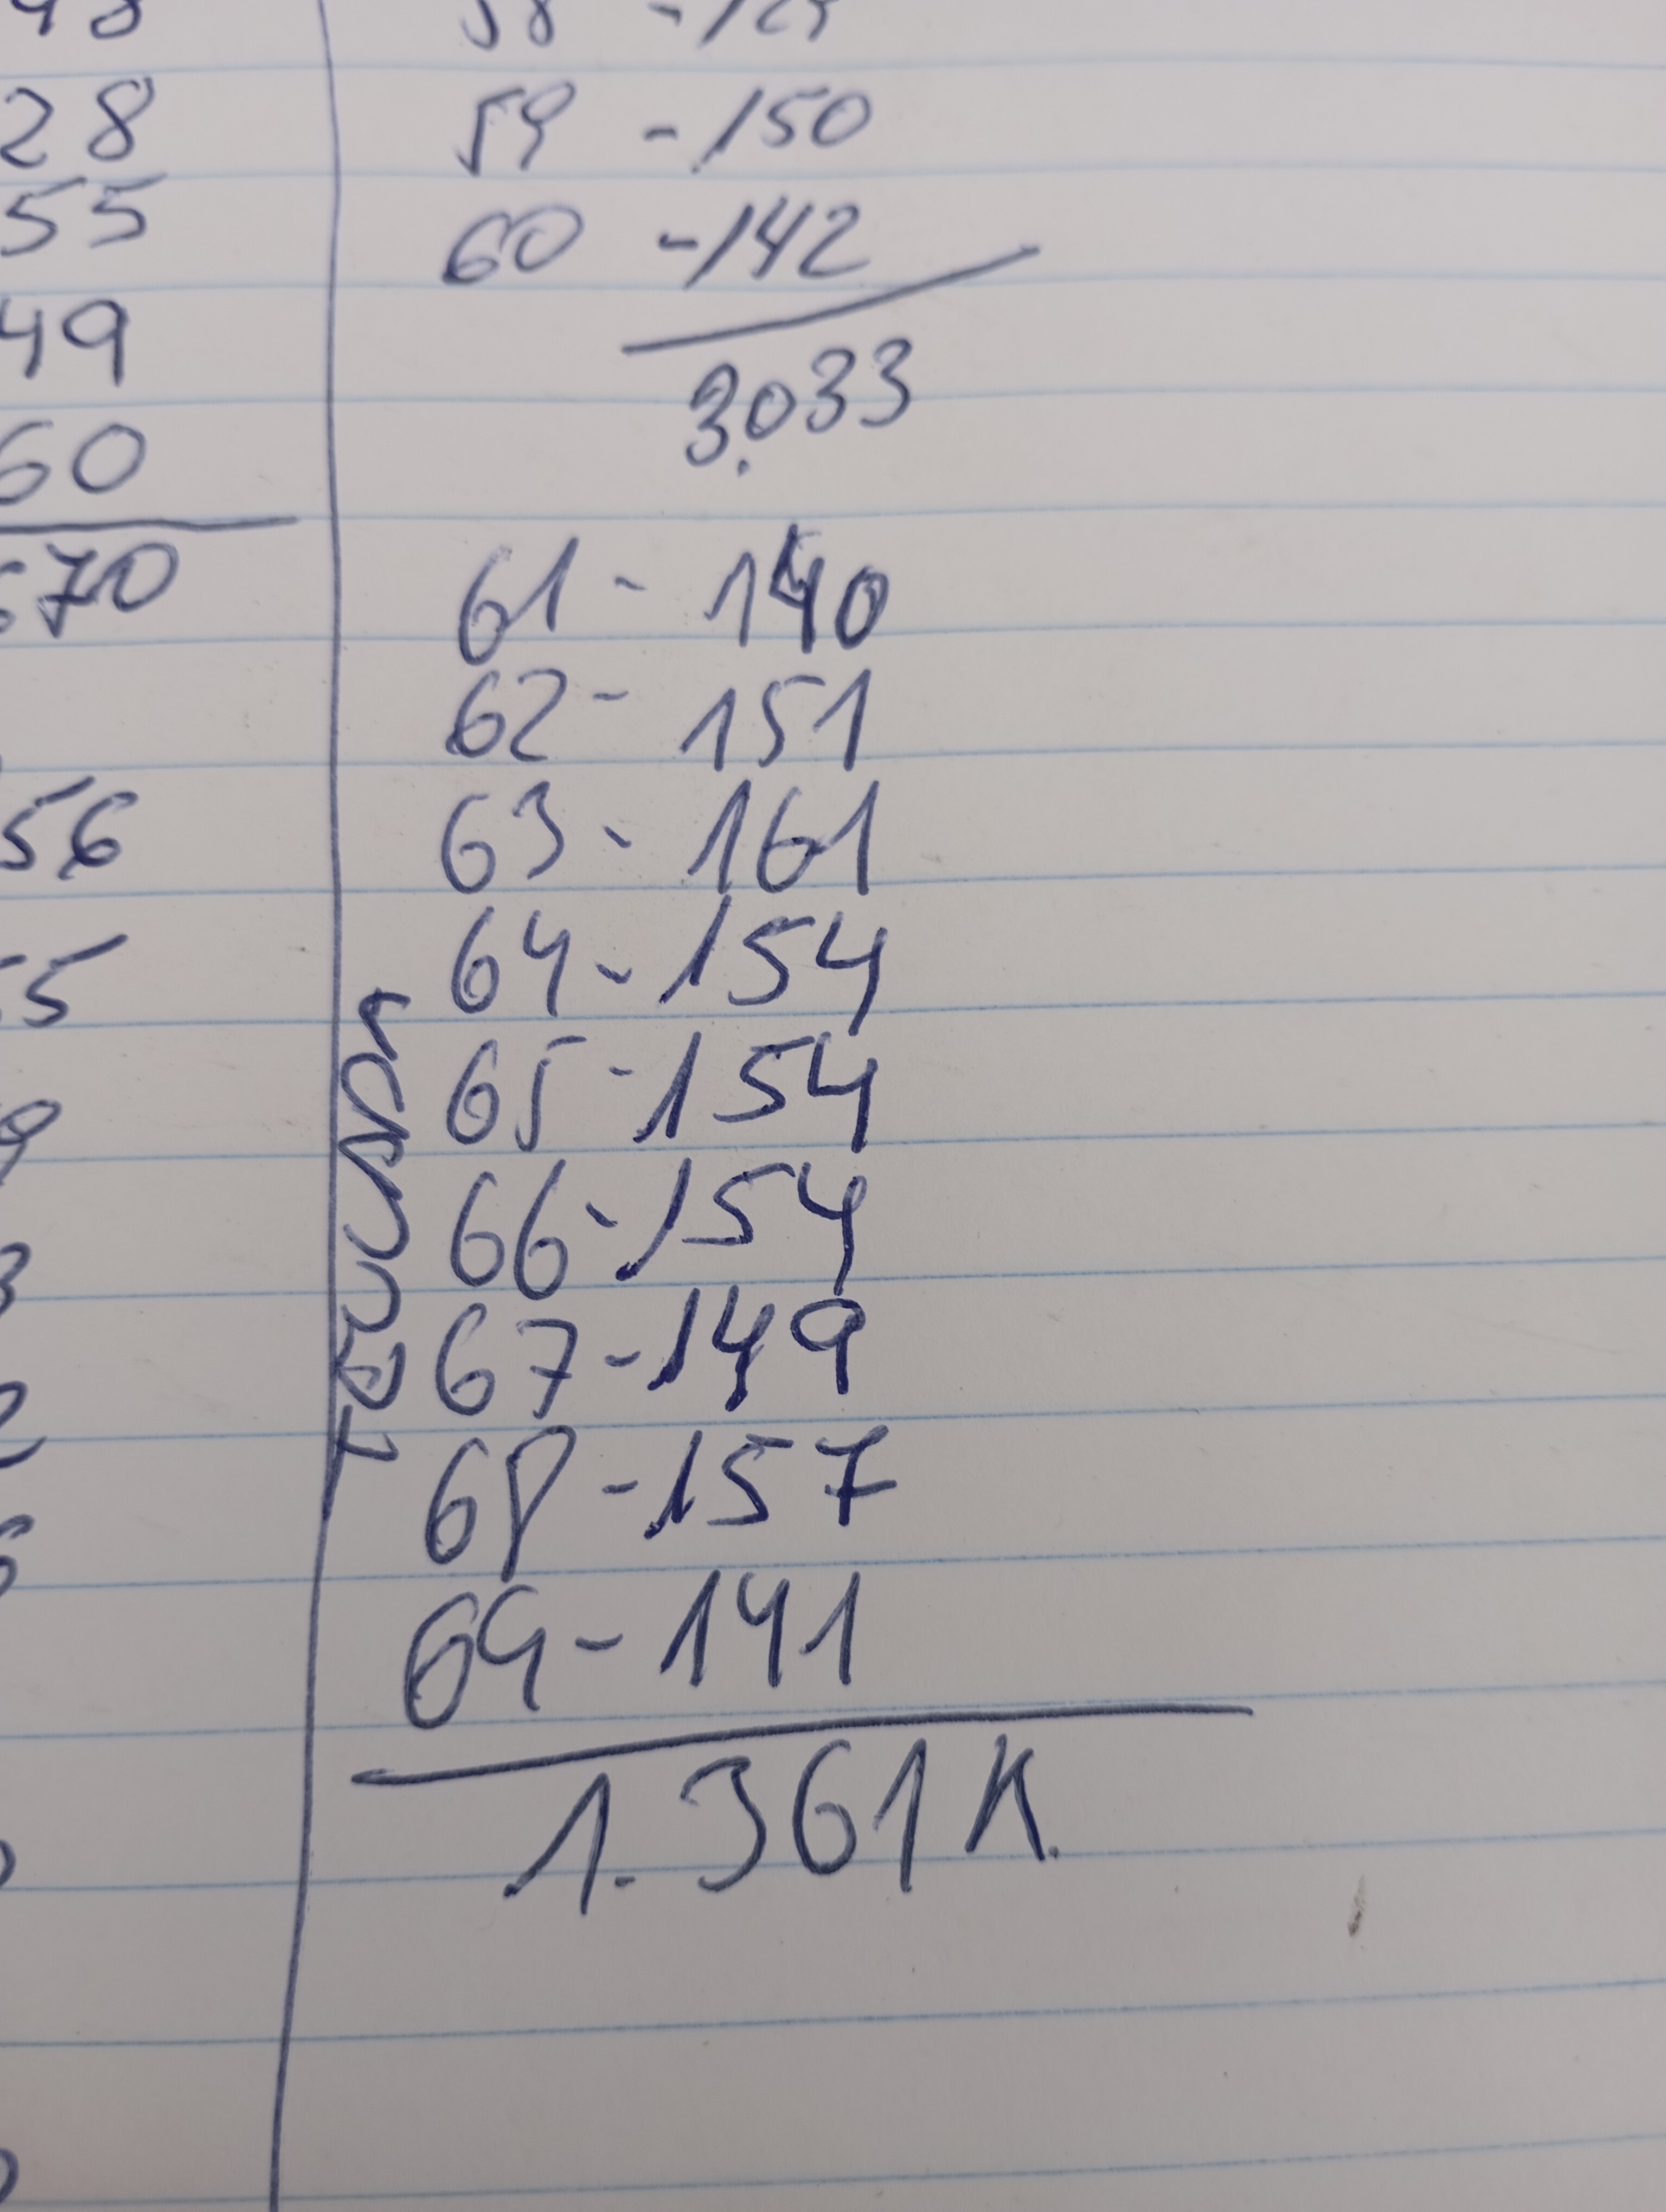 48
28
55
49
60
670
56
55
9
3
2
6
58 - 129
59 - 150
60 - 142
3.033
61 - 140
62 - 151
63 - 161
64 - 154
65 - 154
66 - 154
67 - 149
68 - 157
69 - 141
1.361 K.